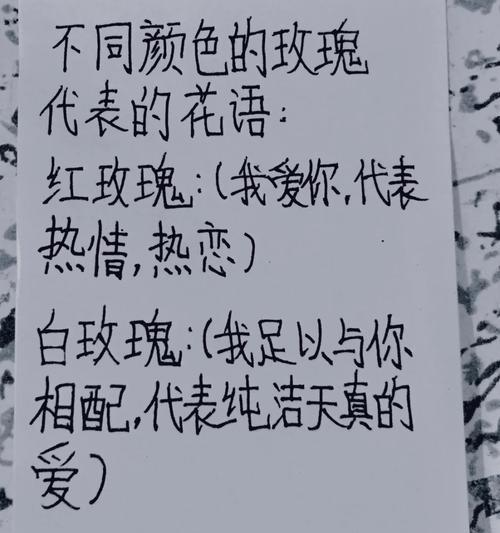 不同颜色的玫瑰
代表的花语:
红玫瑰:(我爱你,代表
热情,热恋)
白玫瑰:(我足以与你
相配,代表纯洁天真的
爱)